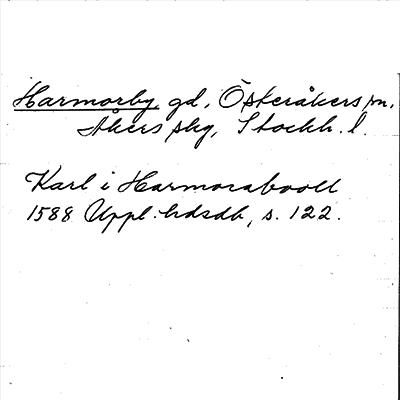 Harmorby, gd, Österåkers sn,
Åkers skg, Stockh. l.
Karl i Harmoraboodt
1588 Uppl. hdsdb, s. 122.